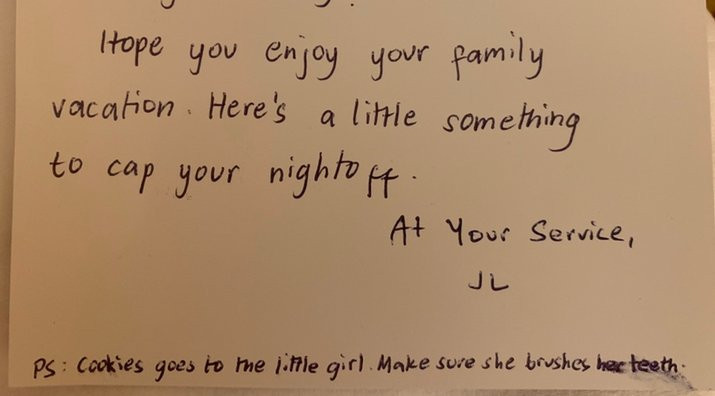 Hope you enjoy your family
vacation. Here's a little something
to cap your night off.
At Your Service,
JL
PS: Cookies goes to the little girl. Make sure she brushes her teeth.